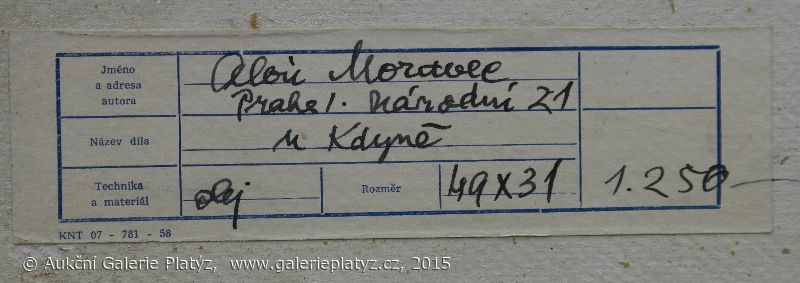 Jméno
a adresa
autora
Alois Moravec
Praha 1. Národní 21
Název díla
u Kdyně
Technika
a materiál
olej
Rozměr
49x31
1.250
KNT 07 - 781 - 58
© Aukční Galerie Platýz, www.galerieplatyz.cz, 2015